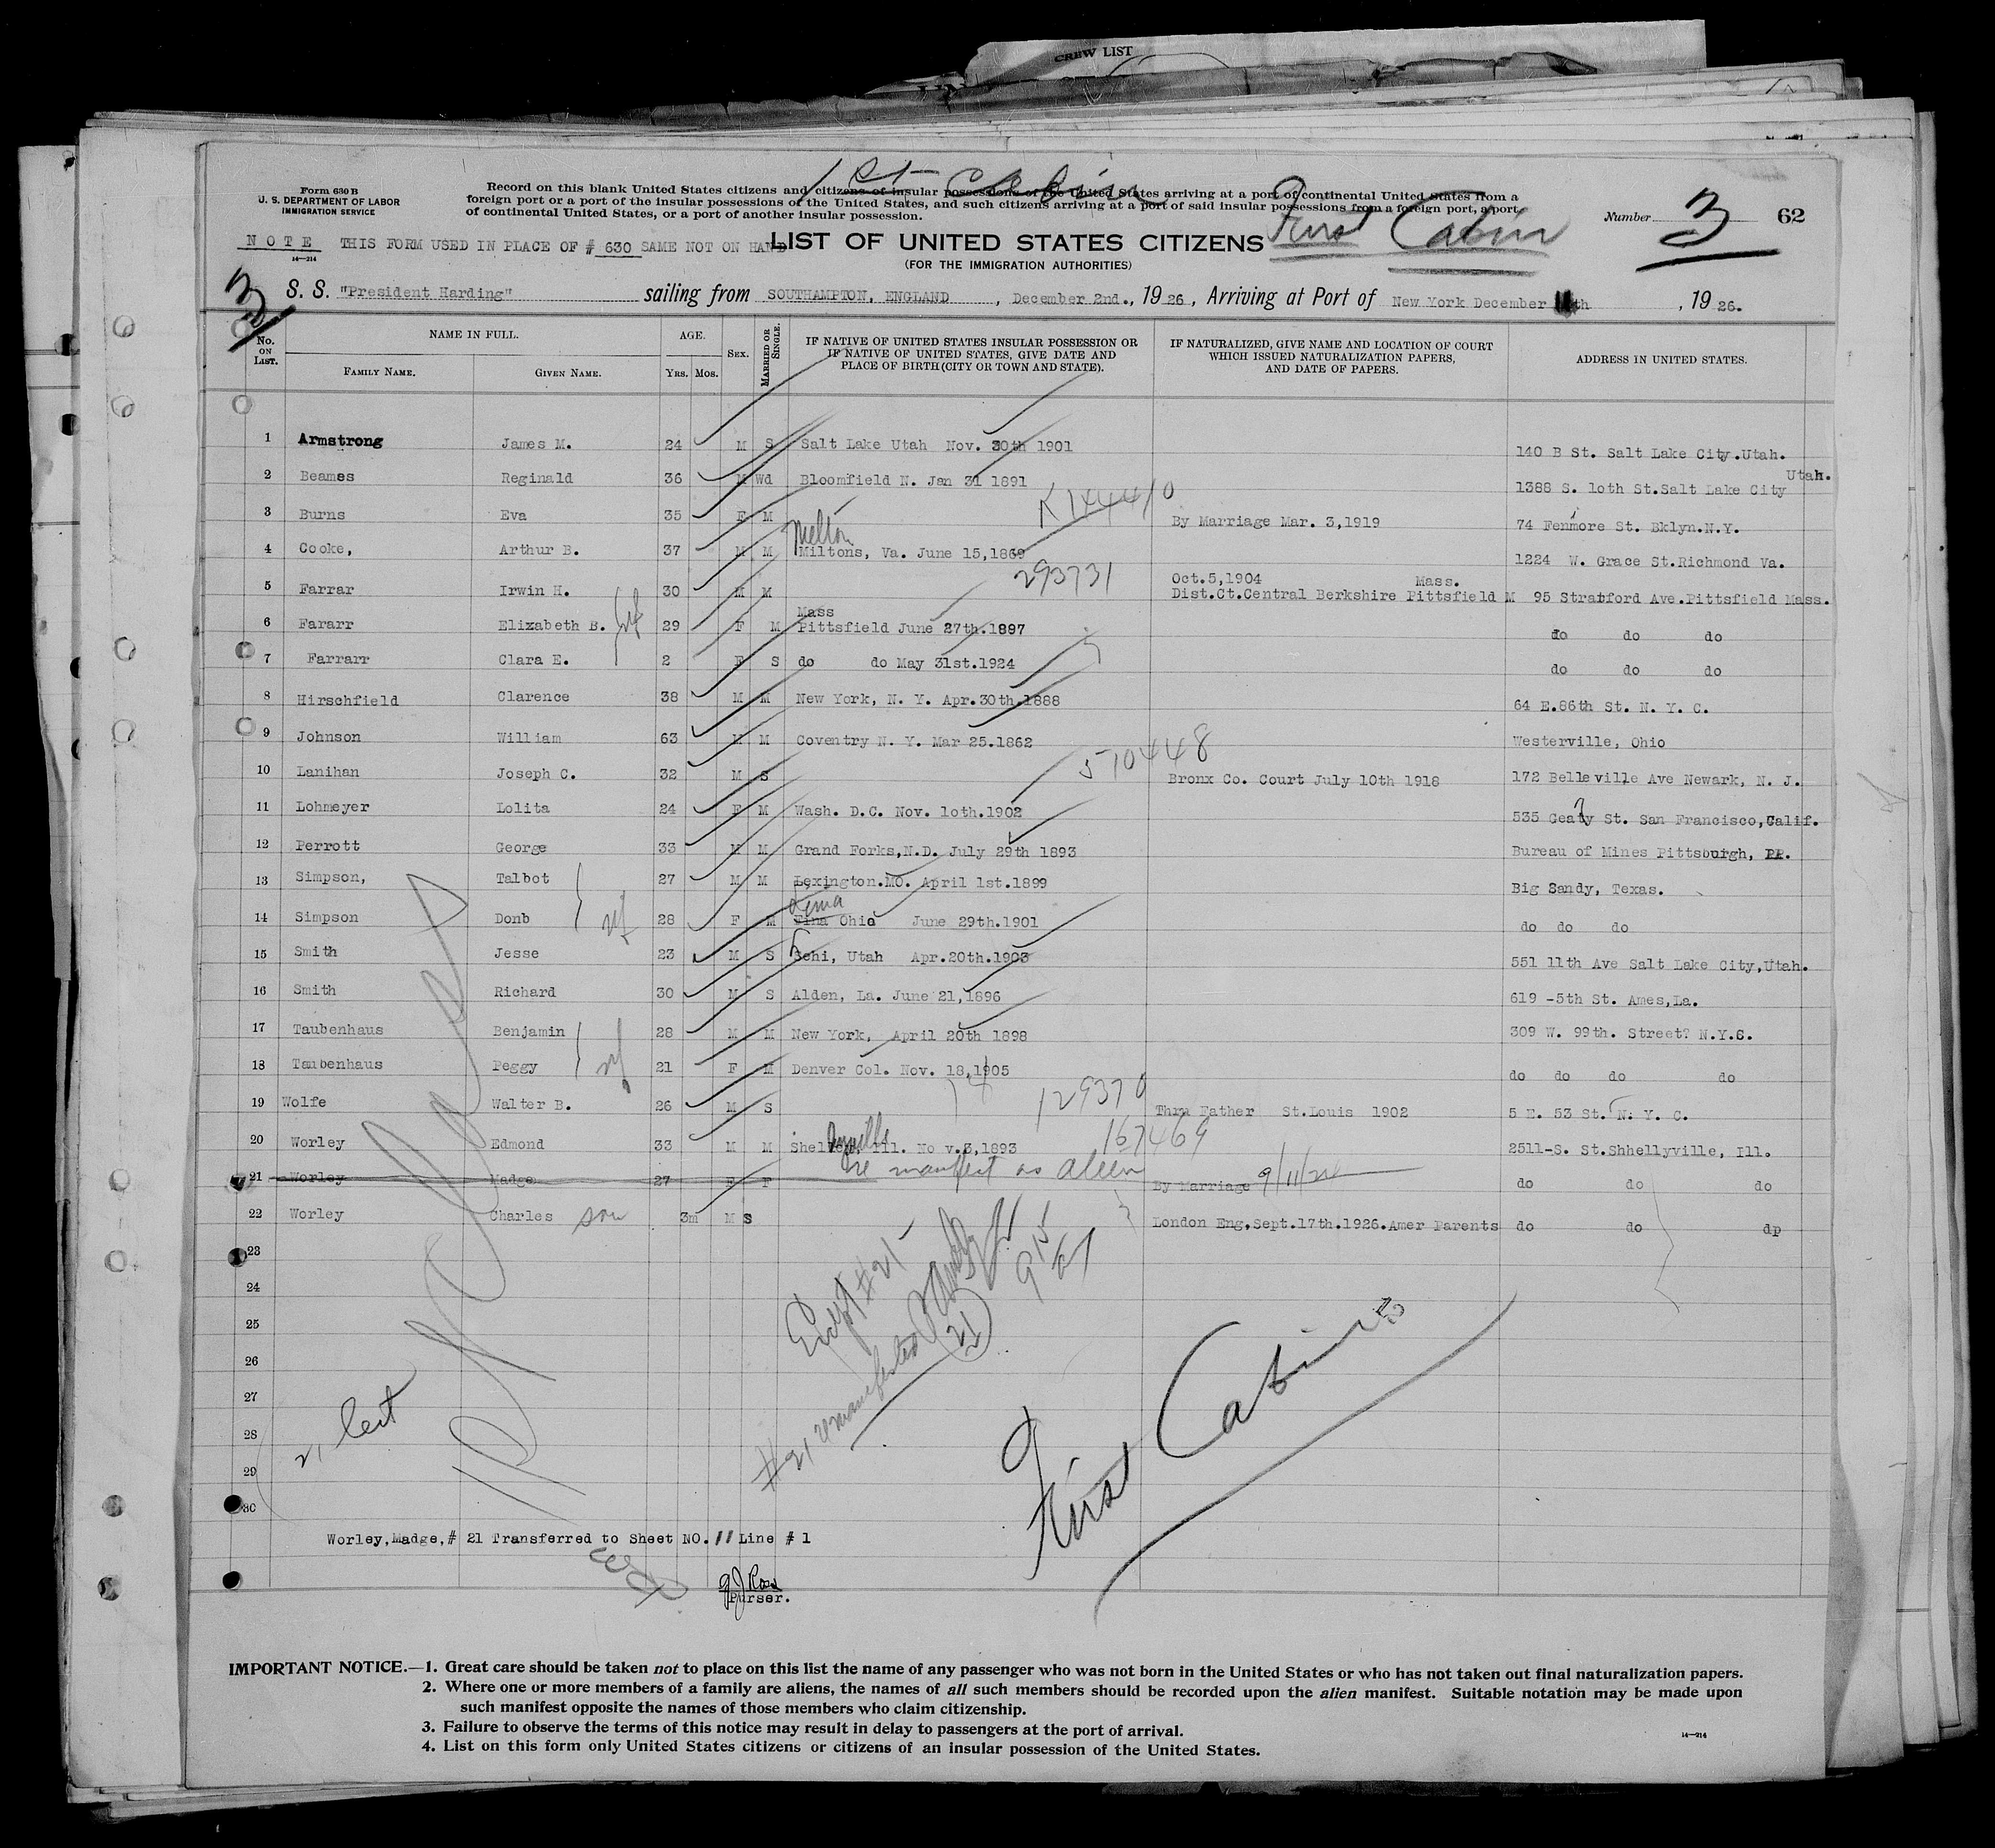 CREW LIST
1st Cabin
Form 630 B
U. S. DEPARTMENT OF LABOR
IMMIGRATION SERVICE
Record on this blank United States citizens and citizens of insular possessions of the United States arriving at a port of continental United States from a
foreign port or a port of the insular possessions of the United States, and such citizens arriving at a port of said insular possessions from a foreign port, a port
of continental United States, or a port of another insular possession.
Number 3 62
NOTE THIS FORM USED IN PLACE OF # 630 SAME NOT ON HAND
14—214
LIST OF UNITED STATES CITIZENS First Cabin
(FOR THE IMMIGRATION AUTHORITIES)
3
S. S. "President Harding" sailing from SOUTHAMPTON, ENGLAND , December 2nd., 1926, Arriving at Port of New York December 11th , 1926.
No. ON LIST. NAME IN FULL. FAMILY NAME. GIVEN NAME. AGE. YRS. MOS. SEX. MARRIED OR SINGLE. IF NATIVE OF UNITED STATES INSULAR POSSESSION OR IF NATIVE OF UNITED STATES, GIVE DATE AND PLACE OF BIRTH (CITY OR TOWN AND STATE). IF NATURALIZED, GIVE NAME AND LOCATION OF COURT WHICH ISSUED NATURALIZATION PAPERS, AND DATE OF PAPERS. ADDRESS IN UNITED STATES.
1 Armstrong James M. 24 M S Salt Lake Utah Nov. 30th 1901 140 B St. Salt Lake City.Utah.
2 Beames Reginald 36 M Wd Bloomfield N. Jan 31 1891 1388 S. 10th St.Salt Lake City Utah.
K144410
3 Burns Eva 35 F M By Marriage Mar. 3,1919 74 Fenmore St. Bklyn.N.Y.
Melton
4 Cooke, Arthur B. 37 M M Miltons, Va. June 15,1869 1224 W. Grace St.Richmond Va.
293731
5 Farrar Irwin H. 30 M M Oct.5,1904 Mass.
Dist.Ct.Central Berkshire Pittsfield M 95 Stratford Ave.Pittsfield Mass.
Mass
6 Fararr Elizabeth B. 29 F M Pittsfield June 27th.1897 do do do
7 Farrarr Clara E. 2 F S do do May 31st.1924 do do do
8 Hirschfield Clarence 38 M M New York, N. Y. Apr.30th.1888 64 E.86th St. N. Y. C.
9 Johnson William 63 M M Coventry N. Y. Mar 25.1862 Westerville, Ohio
570448
10 Lanihan Joseph C. 32 M S Bronx Co. Court July 10th 1918 172 Belleville Ave Newark, N. J.
11 Lohmeyer Lolita 24 F M Wash. D.C. Nov. 10th.1902 535 Geary St. San Francisco,Calif.
12 Perrott George 33 M M Grand Forks,N.D. July 29th 1893 Bureau of Mines Pittsburgh, PP.
13 Simpson, Talbot 27 M M Lexington.MO. April 1st.1899 Big Sandy, Texas.
Lima
14 Simpson Donb 28 F M Tina Ohio June 29th.1901 do do do
15 Smith Jesse 23 M S Lehi, Utah Apr.20th.1903 551 11th Ave Salt Lake City,Utah.
16 Smith Richard 30 M S Alden, La. June 21,1896 619 -5th St. Ames,La.
17 Taubenhaus Benjamin 28 M M New York, April 20th 1898 309 W. 99th. Street? N.Y.C.
18 Taubenhaus Peggy 21 F M Denver Col. Nov. 18,1905 do do do do
129370
19 Wolfe Walter B. 26 M S Thru Father St.Louis 1902 5 E. 53 St. N. Y. C.
167469
20 Worley Edmond 33 M M Ill. Nov.3,1893 2511-S. St.Shhellyville, Ill.
re manifest as alien
21 Worley Madge 27 F By Marriage do do do
22 Worley Charles son 3m M S London Eng,Sept.17th.1926.Amer Parents do do dp
23
24
25
26
27
28
29
30
Except #21
#21 remanifested
21
First Cabin
Worley,Madge,# 21 Transferred to Sheet NO. 11 Line # 1
Purser.
IMPORTANT NOTICE.—1. Great care should be taken not to place on this list the name of any passenger who was not born in the United States or who has not taken out final naturalization papers.
2. Where one or more members of a family are aliens, the names of all such members should be recorded upon the alien manifest. Suitable notation may be made upon
such manifest opposite the names of those members who claim citizenship.
3. Failure to observe the terms of this notice may result in delay to passengers at the port of arrival.
4. List on this form only United States citizens or citizens of an insular possession of the United States.
14—214